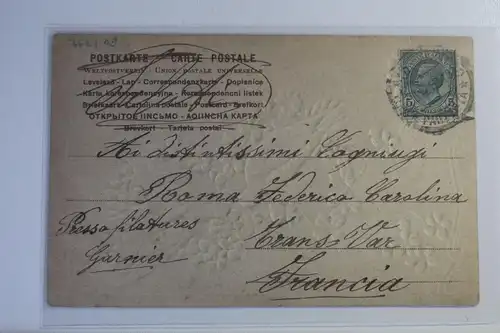 POSTKARTE - CARTE POSTALE
WELTPOSTVEREIN - UNION POSTALE UNIVERSELLE
Levelező-Lap - Correspondenzkarte - Dopisnice
Karta korespondencyjna - Korespondencni listek
Brefkaart - Cartolina postale - Postcard - Brefkort
ОТКРЫТОЕ ПИСЬМО -
Brevkort - Tarjeta postal
5 5
Ai distintissimi Cogniugi
Roma Federico Carolina
Presso filatures
Garnier
Trans-Var
Francia